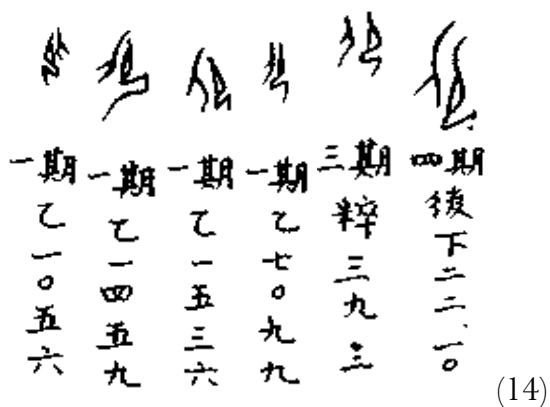 一期乙一〇五六
一期乙一四五九
一期乙一五三六
一期乙七〇九九
三期粹三九.三
四期後下二二.一〇
(14)